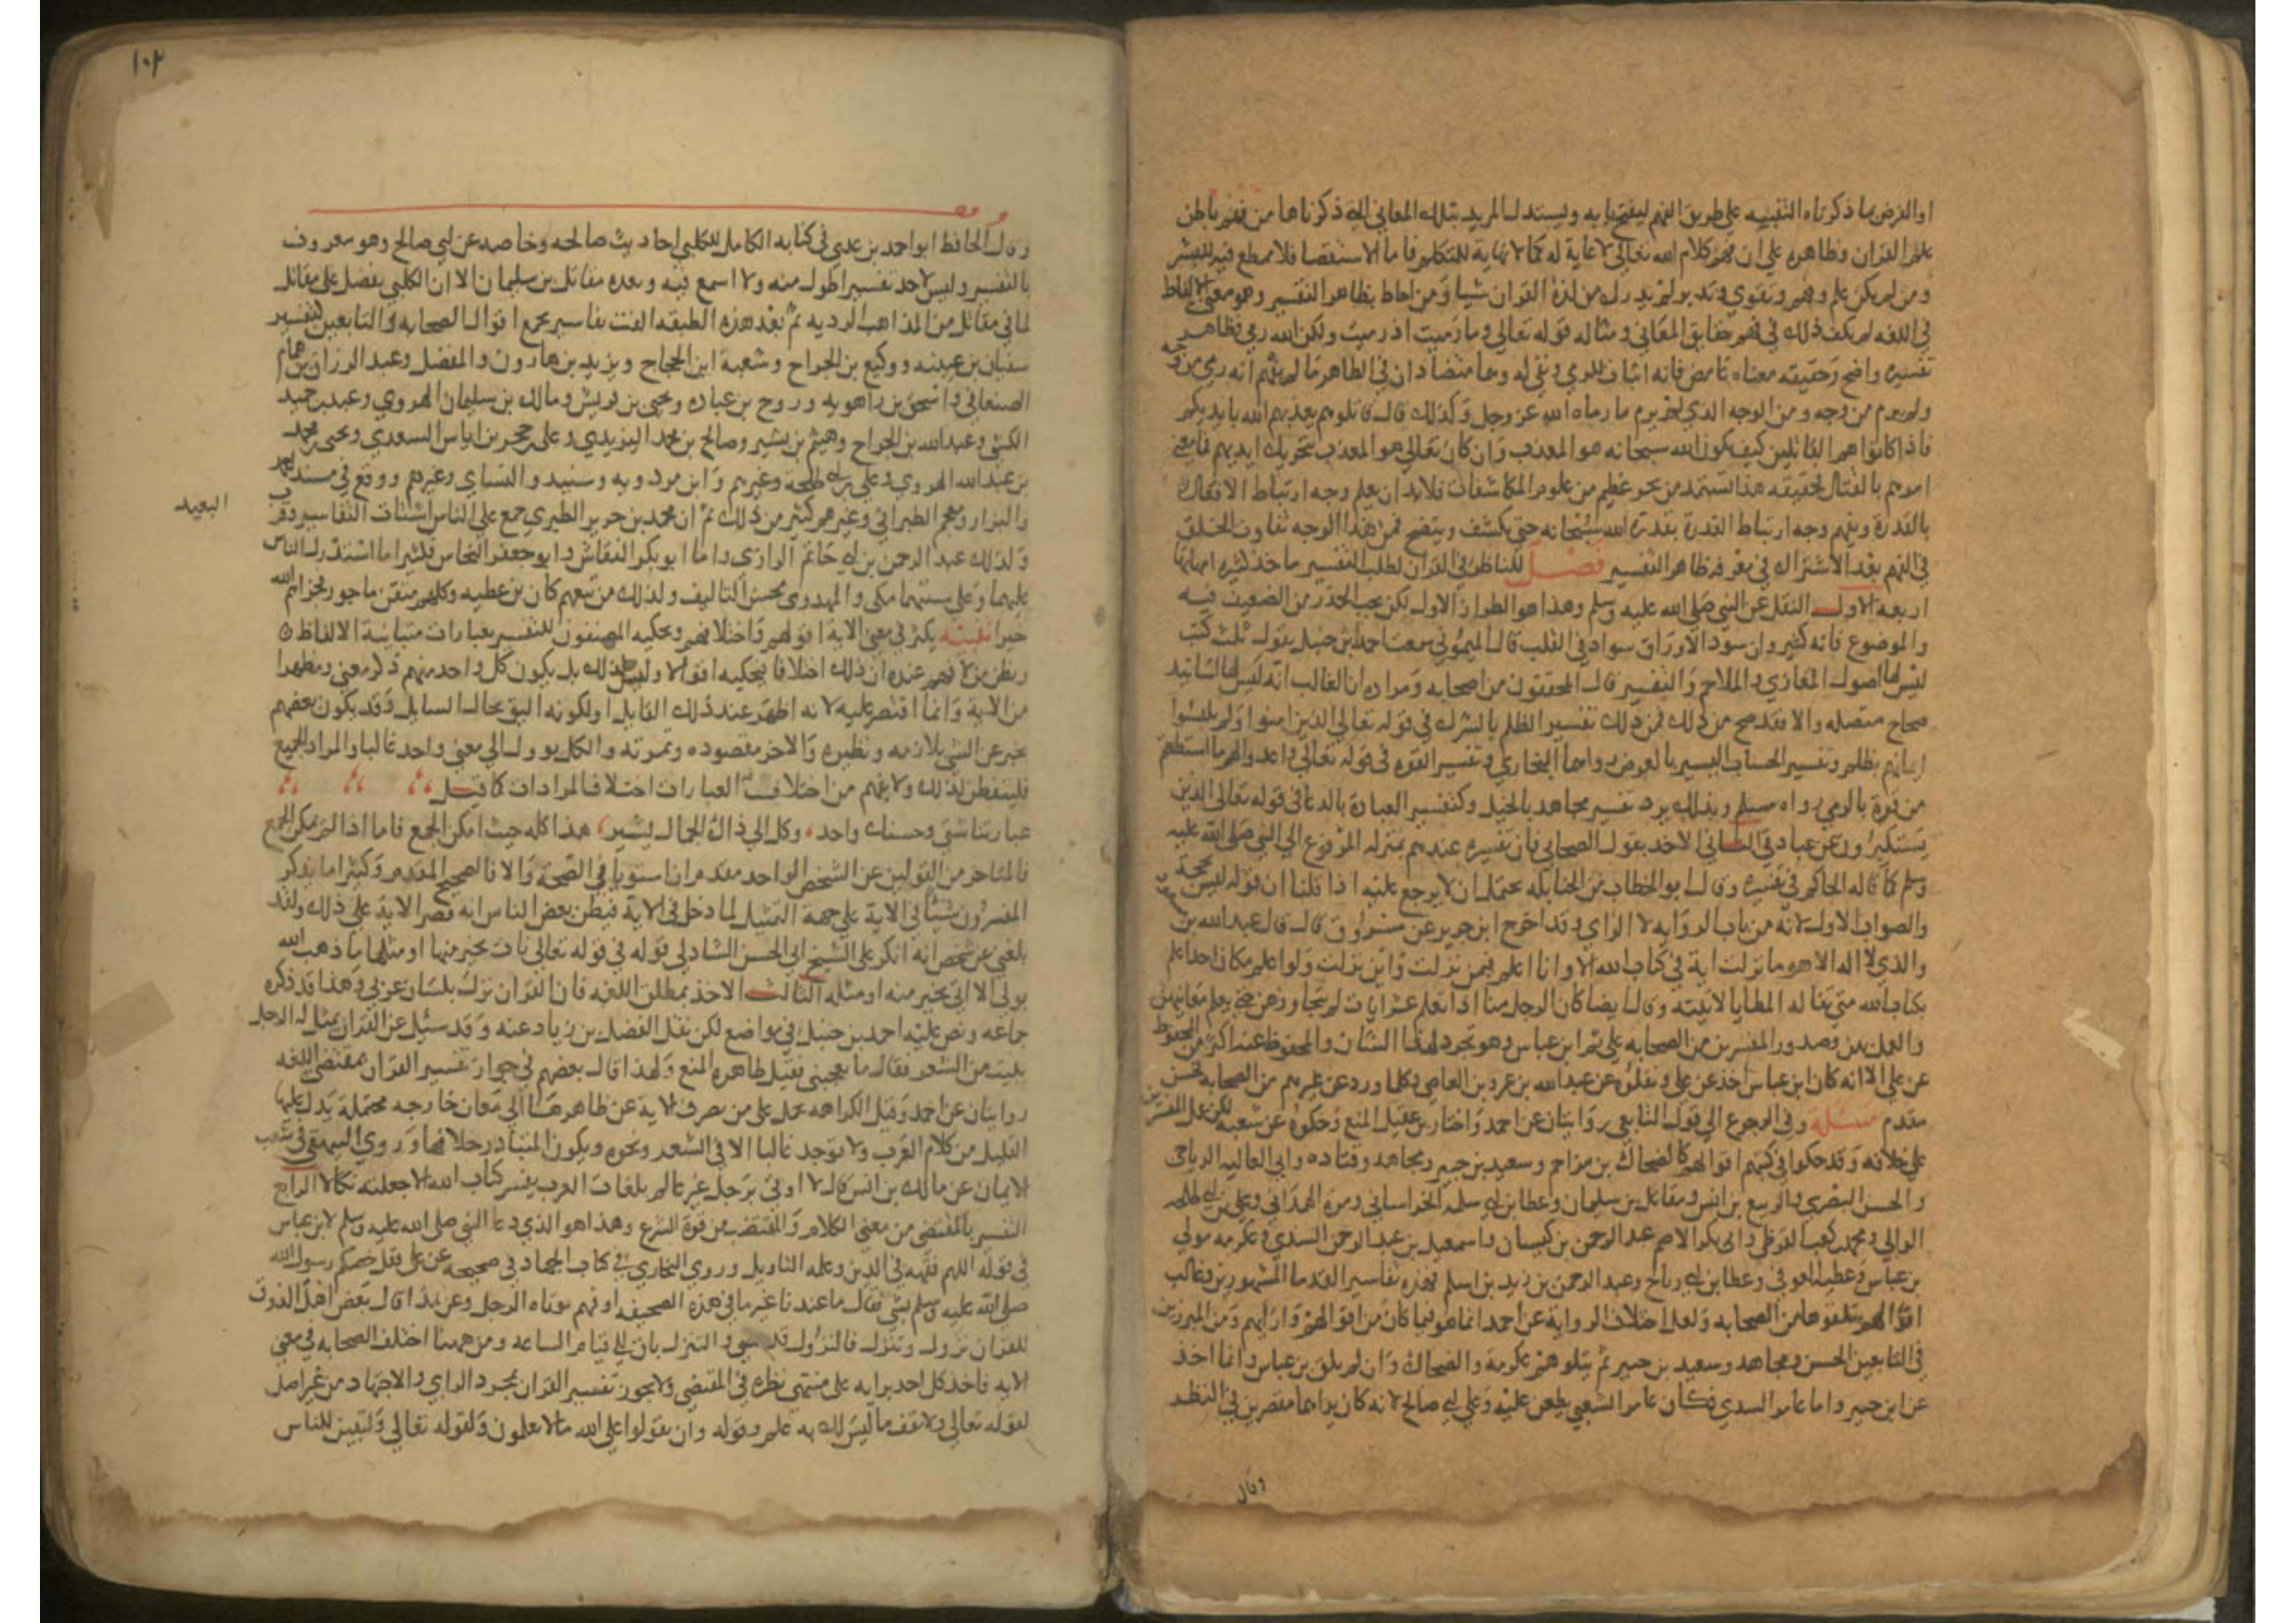 او الغرض مما ذكرناه التنبيه علي طريق الفهم ليفتح بابه وليستدل المريد بتلك المعاني التي ذكرناها من فهم باطن
علم القران وظاهره علي ان فهم كلام الله تعالي لا غاية له كما لا نهاية للمتكلم فاما الاستقصا فلا مطمع فيه للبشر
ومن لم يكن علم وفهم وتقوي وتدبر لم يدرك من لذة القران شيا ومن احاط بظاهر التفسير وهو معني الالفاظ
في اللغه لم يكف ذلك في فهم حقايق المعاني ومثاله قوله تعالي وما رميت اذ رميت ولكن الله رمي فظاهر
تفسيره واضح وحقيقة معناه غامض فانه اثبات للرمي ونفي له وهما متضادان في الظاهر ما لم يفهم انه رمي من وجه
ولم يرم من وجه ومن الوجه الذي لم يرم ما رماه الله عز وجل وكذلك قال قاتلوهم يعذبهم الله بايديكم
فاذا كانوا هم القاتلين كيف يكون الله سبحانه هو المعذب وان كان تعالي هو المعذب بتحريك ايديهم فما معني
امرهم بالقتال فحقيقه هذا تستمد من بحر عظيم من علوم المكاشفات فلا بد ان يعلم وجه ارتباط الافعال
بالقدرة ويفهم وجه ارتباط القدرة بقدرة الله سبحانه حتي يكشف ويتضح فمن هذا الوجه تفاوت الخلق
في الفهم بعد الاشتراك في معرفة ظاهر التفسير فصل للناظر في القران لطلب التفسير ماخذ كثيره امهاتها
اربعه الاول النقل عن النبي صلي الله عليه وسلم وهذا هو الطراز الاول لكن يجب الحذر من الضعيف فيه
والموضوع فانه كثير وان سواد الاوراق سواد في القلب قال الميموني سمعت احمد بن حنبل يقول ثلث كتب
ليس لها اصول المغازي والملاحم والتفسير قال المحققون من اصحابه ومراده ان الغالب انه ليس لها اسانيد
صحاح متصله والا فقد صح من ذلك كثير فمن ذلك تفسير الظلم بالشرك في قوله تعالي الذين امنوا ولم يلبسوا
ايمانهم بظلم وتفسير الحساب اليسير بالعرض رواهما البخاري وتفسير القوه في قوله تعالي واعدوا لهم ما استطعتم
من قوة بالرمي رواه مسلم وبذلك يرد تفسير مجاهد بالخيل وكتفسير العبادة بالدعا في قوله تعالي الذين
يستكبرون عن عبادتي الثاني الاخذ بقول الصحابي فان تفسيره عندهم بمنزله المرفوع الي النبي صلي الله عليه
وسلم كما قاله الحاكم في تفسيره وقال ابو الخطاب من الحنابله يحتمل ان لا يرجع عليه اذا قلنا ان قوله ليس بحجة
والصواب الاول لانه من باب الروايه لا الراي وقد اخرج ابن جرير عن مسروق قال قال عبد الله بن
والذي لا اله الا هو ما نزلت اية في كتاب الله الا وانا اعلم فيمن نزلت واين نزلت ولو اعلم مكان احد اعلم
بكتاب الله مني تناله المطايا لاتيته وقال ايضا كان الرجل منا اذا تعلم عشر ايات لم يتجاوزهن حتي يعلم معانيهن
والعمل بهن وصدور المفسرين من الصحابه علي ثم ابن عباس وهو تجرد لهذا الشان والمحفوظ عنه اكثر من المحفوظ
عن علي الا انه كان ابن عباس اخذ عن علي ويتلوه عن عبد الله بن عمرو بن العاص وكلما ورد عن غيرهم من الصحابه فحسن
مقدم مسئلة وفي الرجوع الي قول التابعي روايتان عن احمد واختار بن عقيل المنع وحكوه عن شعبه لكن عمل المفسرين
علي خلافه وقد حكوا في كتبهم اقوالهم كالضحاك بن مزاحم وسعيد بن جبير ومجاهد وقتاده وابي العاليه الرياحي
والحسن البصري والربيع بن انس ومقاتل بن سليمان وعطا بن ابي سلمه الخراساني ومرة الهمداني وعلي بن ابي طلحه
الوالبي ومحمد بن كعب القرظي وابي بكر الاصم عبد الرحمن بن كيسان واسمعيل بن عبد الرحمن السدي وعكرمه مولي
بن عباس وعطيه العوفي وعطا بن ابي رباح وعبد الرحمن بن زيد بن اسلم فهذه تفاسير القدما المشهورين وغالب
اقوالهم تلقوها من الصحابه ولعل اختلاف الرواية عن احمد انما هو فيما كان من اقوالهم وارايهم ومن المبرزين
في التابعين الحسن ومجاهد وسعيد بن جبير ثم يتلوهم عكرمة والضحاك وان لم يلق بن عباس وانما اخذ
عن ابن جبير واما عامر السدي فكان عامر الشعبي يطعن عليه وعلي ابي صالح لانه كان يراهما مقصرين في النظر
وقال
١٠٢
وقال الحافظ ابو احمد بن عدي في كتابه الكامل للكلبي احاديث صالحه وخاصه عن ابي صالح وهو معروف
بالتفسير وليس لاحد تفسير اطول منه ولا اسمع فيه وبعده مقاتل بن سليمان الا ان الكلبي يفضل علي مقاتل
لما في مقاتل من المذاهب الرديه ثم بعد هذه الطبقه الفت تفاسير تجمع اقوال الصحابه والتابعين كتفسير
سفيان بن عيينه ووكيع بن الجراح وشعبة ابن الحجاج ويزيد بن هارون والمفضل وعبد الرزاق بن همام
الصنعاني واسحق بن راهويه وروح بن عباده ويحيي بن قريش ومالك بن سليمان الهروي وعبد بن حميد
الكشي وعبد الله بن الجراح وهشيم بن بشير وصالح بن محمد اليزيدي وعلي بن حجر بن اياس السعدي ويحيي بن محمد
بن عبد الله الهروي وعلي بن ابي طلحة وغيرهم وابن مردويه وسنيد والنساي وغيرهم ووقع في مسند احمد
والبزار ومعجم الطبراني وغيرهم كثير من ذلك ثم ان محمد بن جرير الطبري جمع علي الناس اشتات التفاسير وقرب
البعيد
وكذلك عبد الرحمن بن ابي حاتم الرازي واما ابو بكر النقاش وابو جعفر النحاس فكثيرا ما استدرك الناس
عليهما وعلي سننهما مكي والمهدوي حسن التاليف وكذلك من تبعهم كابن عطيه وكلهم متقن ماجور فجزاهم الله
خيرا تنبيه يكثر في معني الاية اقوالهم واختلافهم ويحكيه المصنفون للتفسير بعبارات متباينة الالفاظ
ويظن من لا فهم عنده ان ذلك اختلافا فيحكيه اقوالا وليس كذلك بل يكون كل واحد منهم ذكر معني ومظهرا
من الاية وانما اقتصر عليه لانه اظهر عند ذلك القايل او لكونه اليق بحال السايل وقد يكون بعضهم
يخبر عن الشي بلازمه ونظيره والاخر بمقصوده وثمرته والكل يوول الي معني واحد غالبا والمراد الجميع
فليتفطن لذلك ولا يفهم من اختلاف العبارات اختلاف المرادات كما قيل
عباراتنا شتي وحسنك واحد وكل الي ذاك الجمال يشير هذا كله حيث امكن الجمع فاما اذا لم يمكن الجمع
فالمتاخر من القولين عن الشخص الواحد مقدم ان استويا في الصحة والا فالصحيح المقدم وكثيرا ما يذكر
المفسرون شيئا في الاية علي جهة التمثيل لما دخل في الاية فيظن بعض الناس انه قصر الاية علي ذلك ولقد
بلغني عن شخص انه انكر علي الشيخ ابي الحسن الشادلي قوله في قوله تعالي نات بخير منها او مثلها ما ذهب الله
بولي الا اتي بخير منه او مثله الثالث الاخذ بمطلق اللغه فان القران نزل بلسان عربي وهذا قد ذكره
جماعه ونص عليه احمد بن حنبل في مواضع لكن نقل الفضل بن زياد عنه وقد سئل عن القران يمثل له الرجل
ببيت من الشعر فقال ما يعجبني فقيل ظاهره المنع ولهذا قال بعضهم في جواز تفسير القران بمقتضي اللغه
روايتان عن احمد وقيل الكراهه تحمل علي من يصرف الاية عن ظاهرها الي معان خارجه محتملة يدل عليها
القليل من كلام العرب ولا يوجد غالبا الا في الشعر ونحوه ويكون المتبادر خلافها وروي البيهقي في شعب
الايمان عن مالك بن انس قال لا اوتي برجل غير عالم بلغات العرب يفسر كتاب الله الا جعلته نكالا الرابع
التفسير بالمقتضي من معني الكلام والمقتضب من قوة الشرع وهذا هو الذي دعا النبي صلي الله عليه وسلم لابن عباس
في قوله اللهم فقهه في الدين وعلمه التاويل وروي البخاري في كتاب الجهاد في صحيحه عن علي هل خصكم رسول الله
صلي الله عليه وسلم بشي فقال ما عندنا غير ما في هذه الصحيفه او فهم يوتاه الرجل وعن هذا قال بعض اهل الذوق
للقران نزول وتنزل فالنزول قد مضي والتنزل باق الي قيام الساعه ومن ههنا اختلف الصحابه في معني
الايه فاخذ كل احد برايه علي منتهي نظره في المقتضي ولا يجوز تفسير القران بمجرد الراي والاجتهاد من غير اصل
لقوله تعالي ولا تقف ما ليس لك به علم وقوله وان تقولوا علي الله مالا تعلمون ولقوله تعالي ولتبين للناس